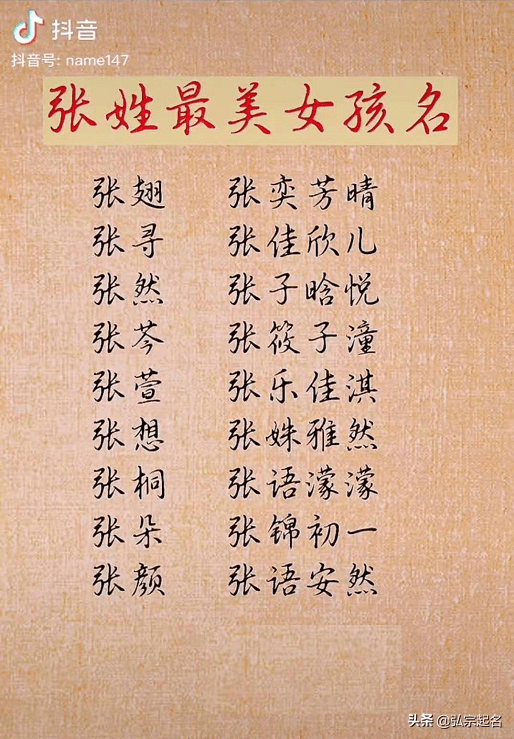 抖音
抖音号: name147
张姓最美女孩名
张翅 张奕芳晴
张寻 张佳欣儿
张然 张子晗悦
张芩 张筱子潼
张萱 张乐佳淇
张想 张姝雅然
张桐 张语濛濛
张朵 张锦初一
张颜 张语安然
头条 @弘宗起名